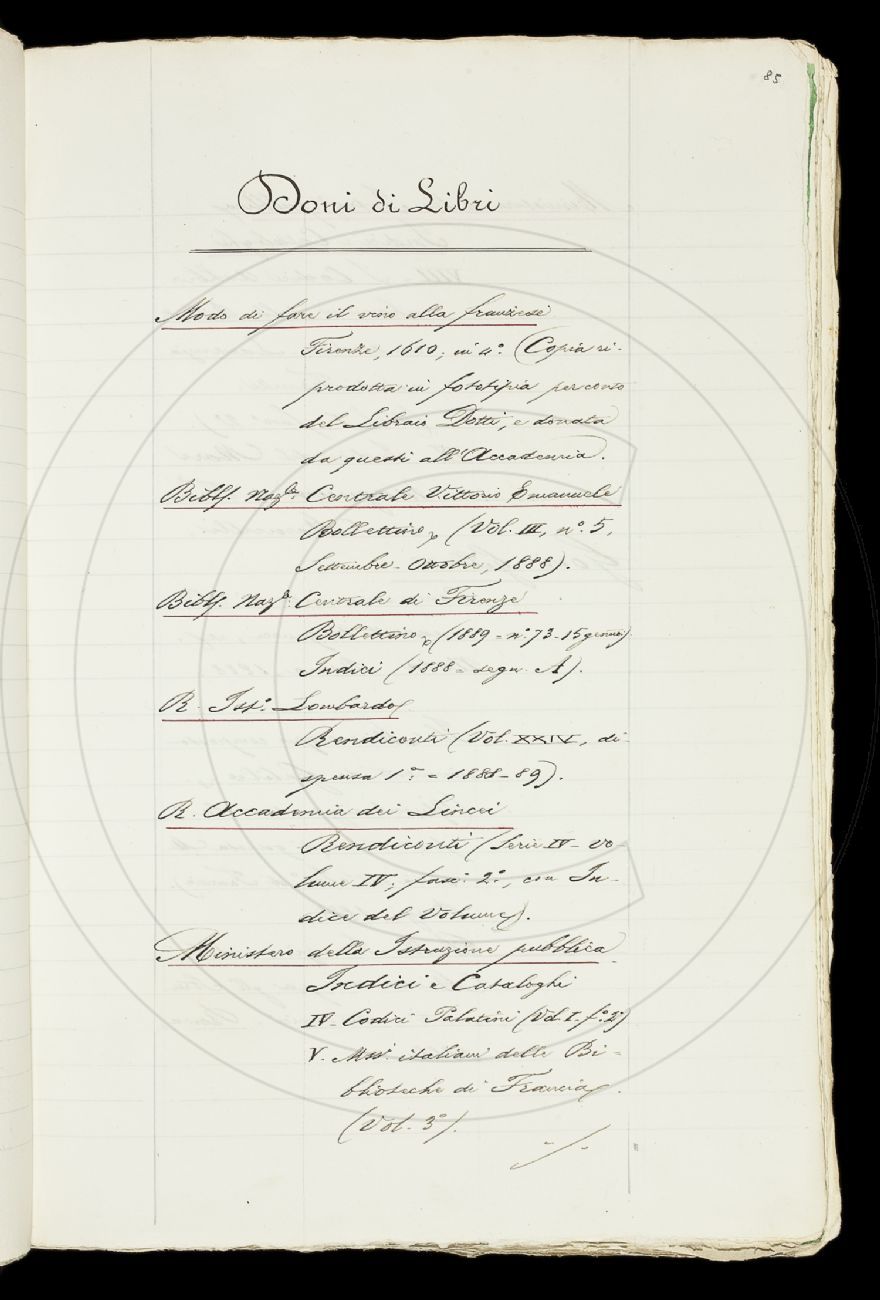 85
Doni di Libri
Modo di fare il vino alla franzese
Firenze, 1610; in 4º. (Copia ri-
prodotta in fototipia per conto
del Libraio Dotti, e donata
da questi all'Accademia).
Bibl. Nazle. Centrale Vittorio Emanuele
Bollettino (Vol. III, nº. 5,
Settembre-Ottobre, 1888).
Bibl. Nazle. Centrale di Firenze
Bollettino (1889 - nº. 73 - 15 genno.)
Indici (1888 - segn. A).
R. Isto. Lombardo
Rendiconti (Vol. XXIV, di-
spensa 1ª. = 1888-89).
R. Accademia dei Lincei
Rendiconti (Serie IV - vo-
lume IV; fasc. 2º, con In-
dice del Volume).
Ministero della Istruzione pubblica
Indici e Cataloghi
IV. Codici Palatini (Vol. I. fº. 2º)
V. Mssi. italiani delle Bi-
blioteche di Francia
(Vol. 3º).
./.